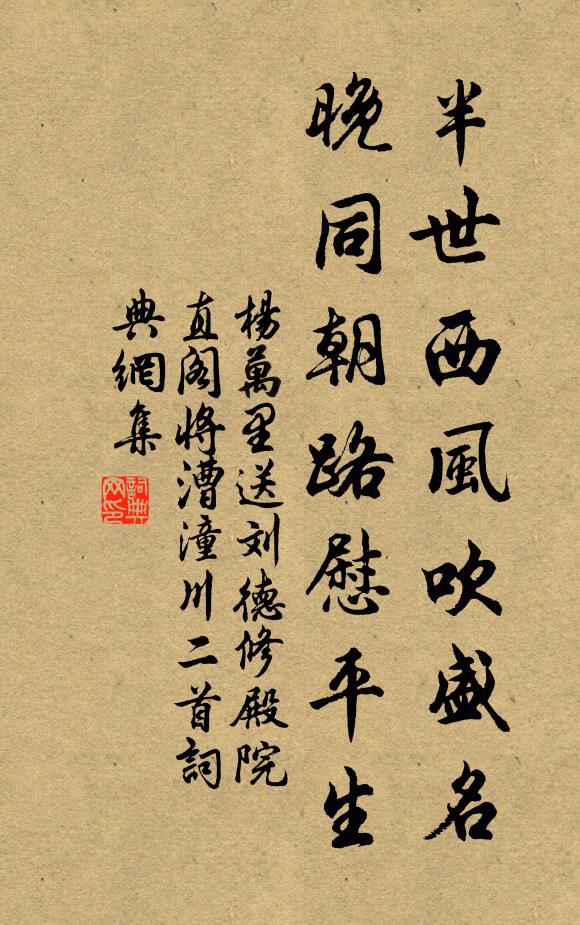 半世西風吹盛名
晚同朝路慰平生
楊萬里送刘德修殿院
直阁将漕潼川二首詞
典網集
詞典网印